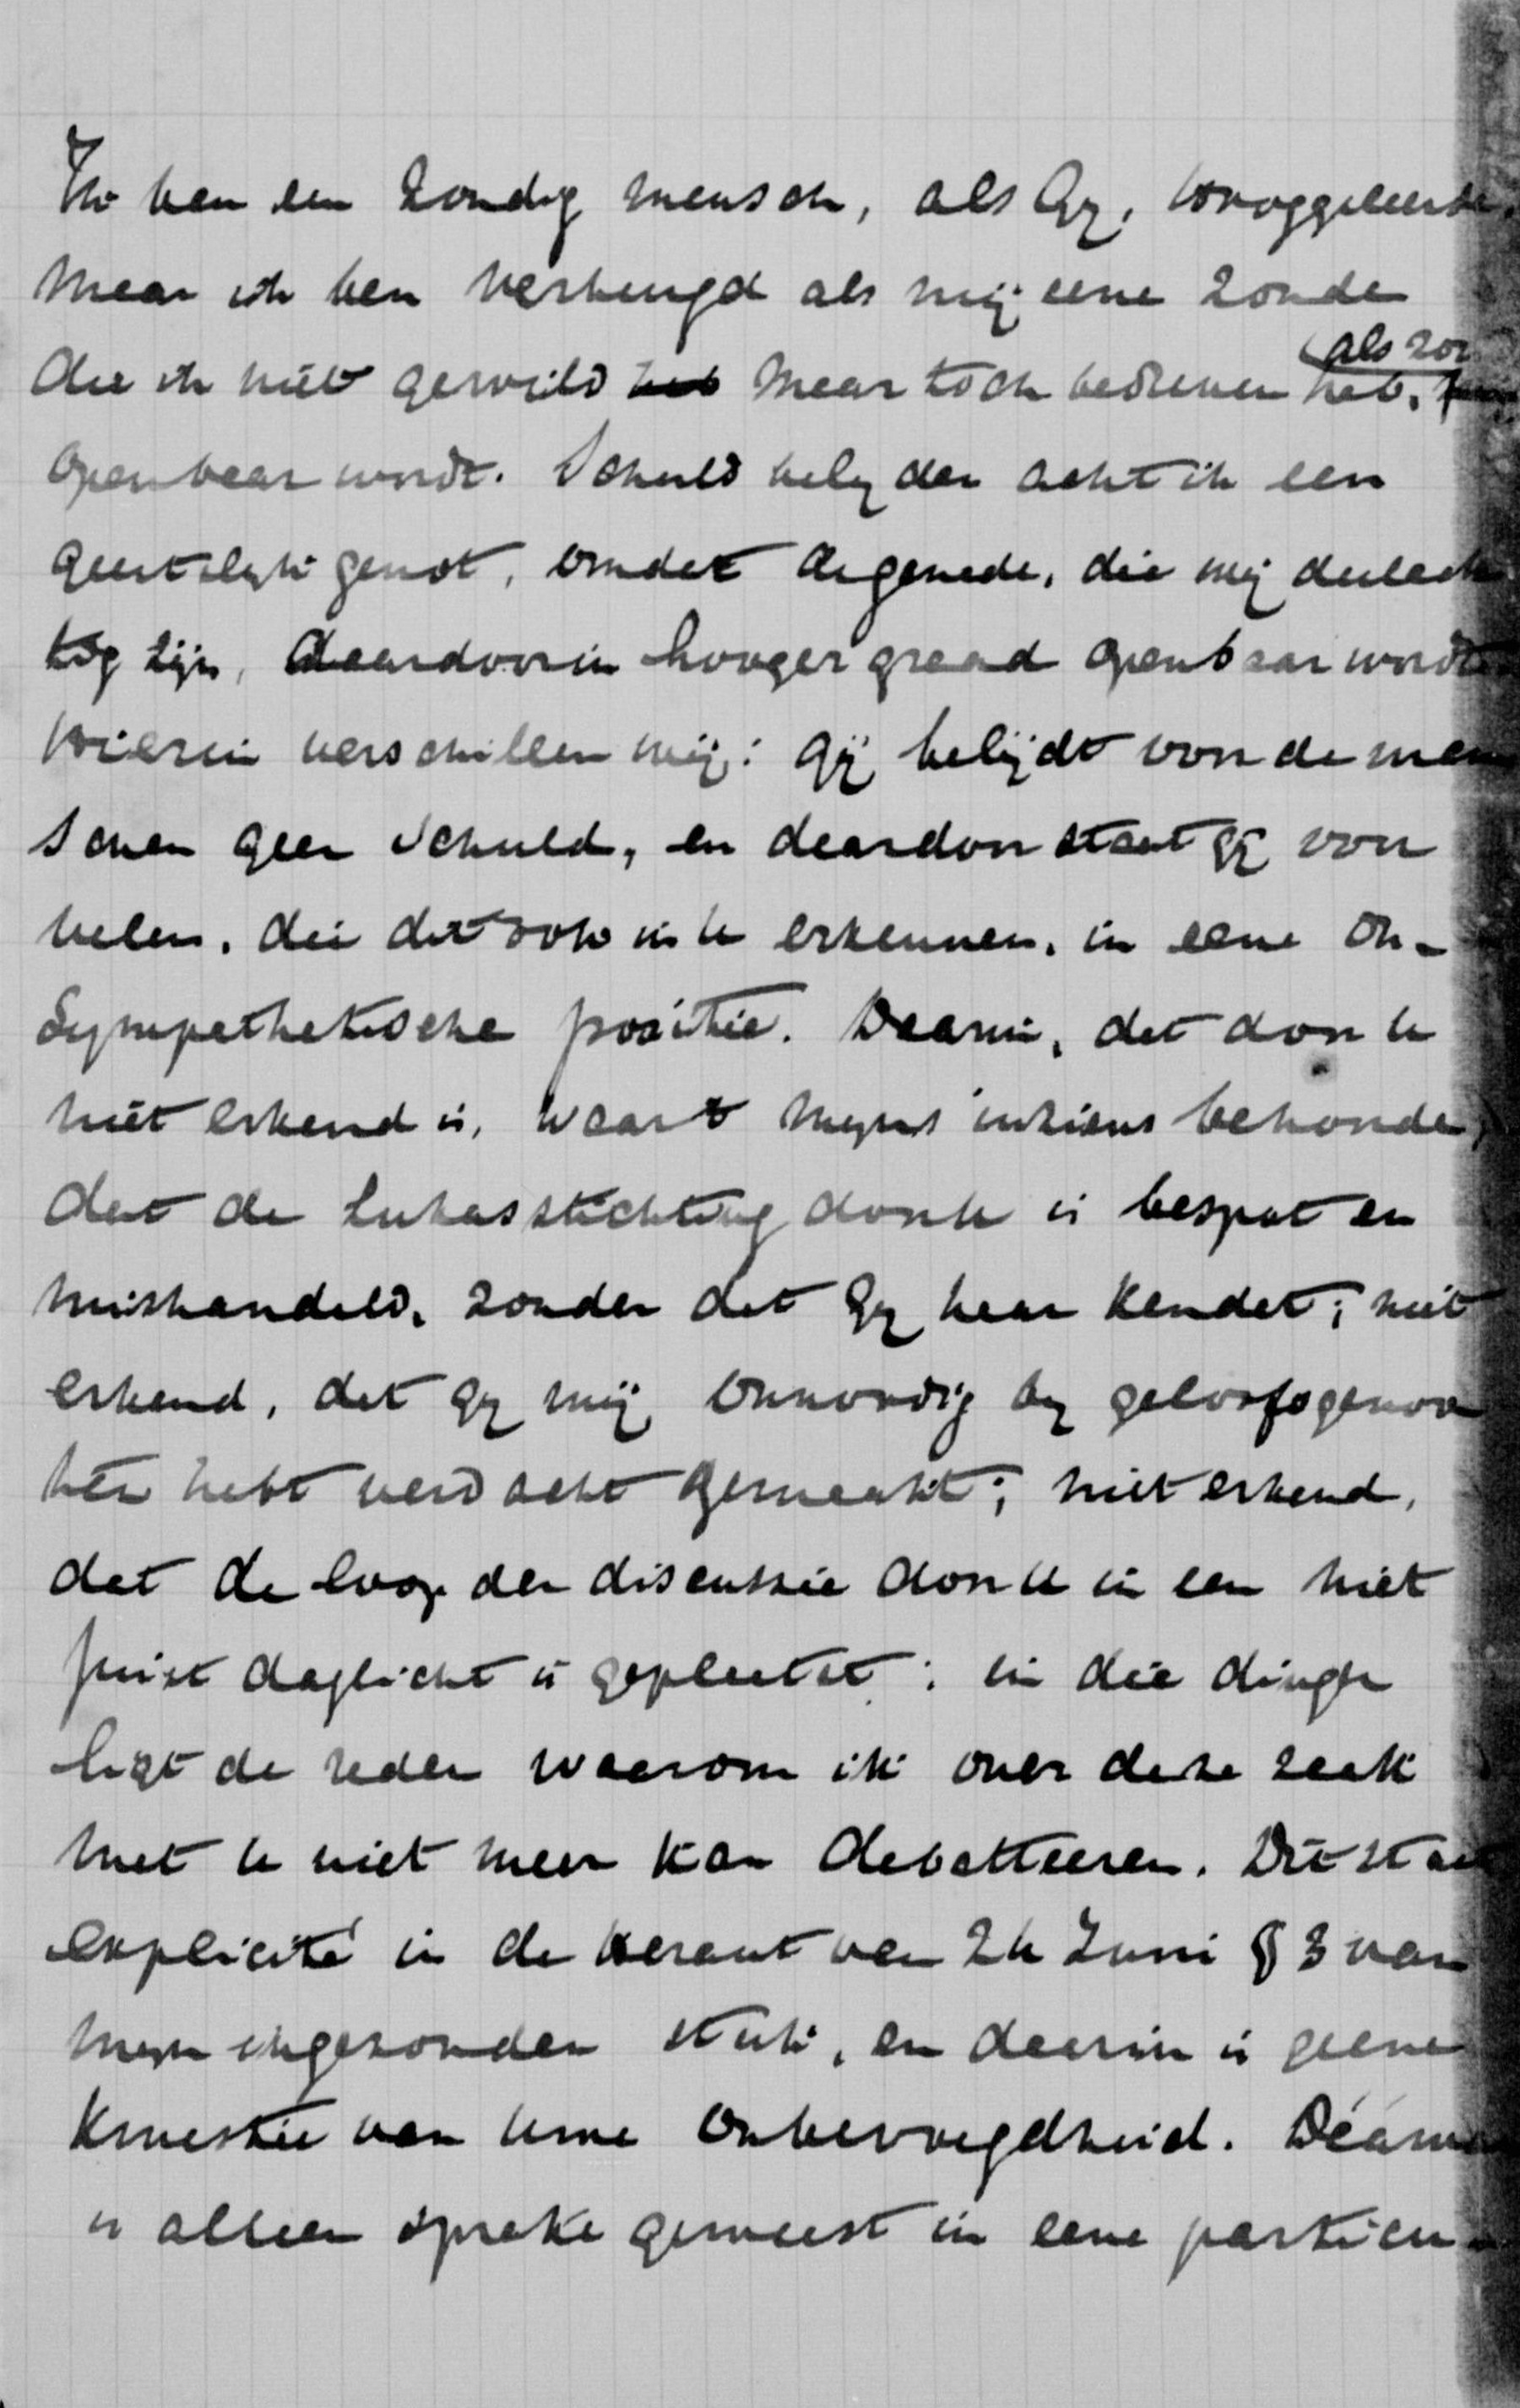 Ik ben een zondig mensch, als Gij, Hooggeleerde,
maar ik ben verheugd als mij eene zonde
als zoo
die ik niet gewild heb maar toch bedreven heb,
openbaar wordt. Schuld belijden acht ik een
geestelijk genot, omdat degenade, die mij deelach
tig zijn, daardoor in hooger graad openbaar wordt
Hierin verschillen wij: gij belijdt voor de men
schen geen schuld, en daardoor staat gij voor
velen, die dit ook in U erkennen, in eene on-
sympathetische positie. Daarin, dat door U
niet erkend is, waart mijns inziens behouden,
dat de Lukasstichting door U is bespot en
mishandeld, zonder dat Gij haar kendet; niet
erkend, dat gij mij onnoodig bij geloofsgenoo
ten hebt verdacht gemaakt; niet erkend,
dat de loop der discussie door U in een niet
juist daglicht is geplaatst; in die dingen
ligt de reden waarom ik over deze zaak
met U niet meer kan debatteeren. Dit staat
explicite in de Heraut van 24 Juni § 3 van
mijn ingezonden stuk, en daarin is geene
kwestie van Uwe onbevoegdheid. Daarvan
is alleen sprake geweest in eene particu